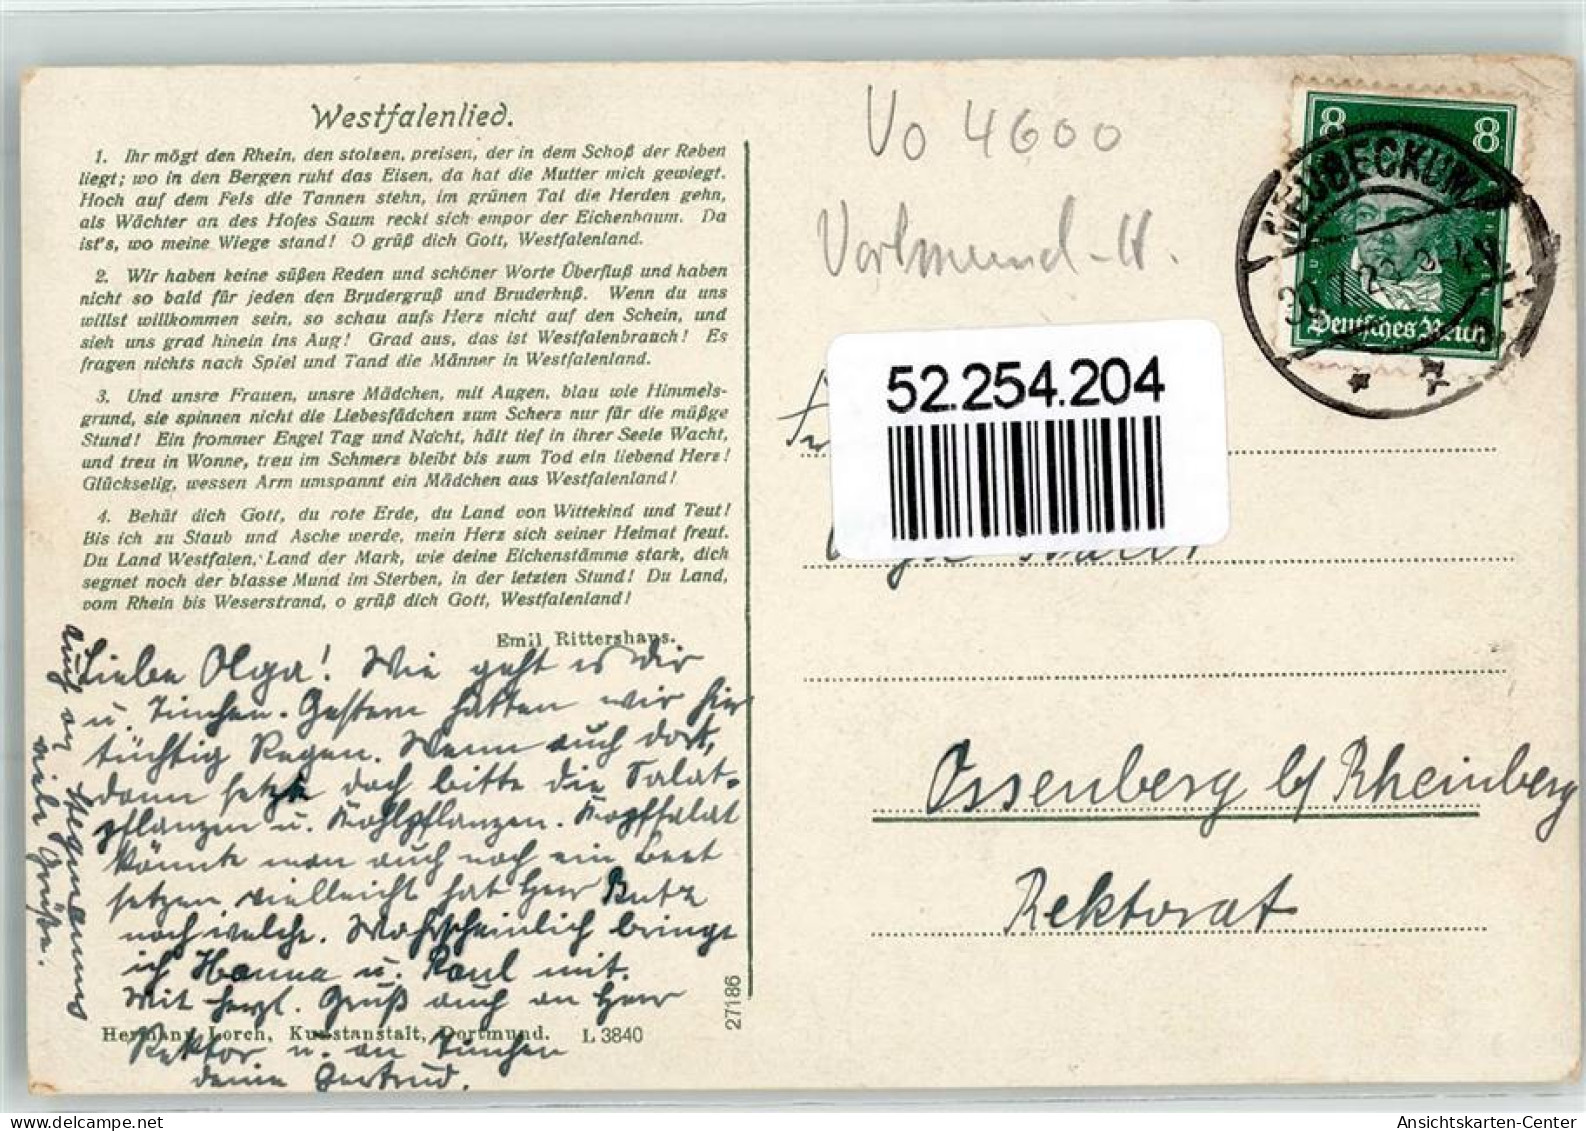 Westfalenlied.
1. Ihr mögt den Rhein, den stolzen, preisen, der in dem Schoß der Reben
liegt; wo in den Bergen ruht das Eisen, da hat die Mutter mich gewiegt.
Hoch auf dem Fels die Tannen stehn, im grünen Tal die Herden gehn,
als Wächter an des Hofes Saum reckt sich empor der Eichenbaum. Da
ist's, wo meine Wiege stand! O grüß dich Gott, Westfalenland.
2. Wir haben keine süßen Reden und schöner Worte Überfluß und haben
nicht so bald für jeden den Brudergruß und Bruderkuß. Wenn du uns
willst willkommen sein, so schau aufs Herz nicht auf den Schein, und
sieh uns grad hinein ins Aug! Grad aus, das ist Westfalenbrauch! Es
fragen nichts nach Spiel und Tand die Männer in Westfalenland.
3. Und unsre Frauen, unsre Mädchen, mit Augen, blau wie Himmels-
grund, sie spinnen nicht die Liebesfädchen zum Scherz nur für die müßge
Stund! Ein frommer Engel Tag und Nacht, hält tief in ihrer Seele Wacht,
und treu in Wonne, treu im Schmerz bleibt bis zum Tod ein liebend Herz!
Glückselig, wessen Arm umspannt ein Mädchen aus Westfalenland!
4. Behüt dich Gott, du rote Erde, du Land von Wittekind und Teut!
Bis ich zu Staub und Asche werde, mein Herz sich seiner Heimat freut.
Du Land Westfalen, Land der Mark, wie deine Eichenstämme stark, dich
segnet noch der blasse Mund im Sterben, in der letzten Stund! Du Land,
vom Rhein bis Weserstrand, o grüß dich Gott, Westfalenland!
Emil Rittershaus.
Liebe Olga! Wie geht es dir
u. Tinchen. Gestern hatten wir hier
tüchtig Regen. Wenn auch dort,
dann setzt doch bitte die Salat-
pflanzen u. Kohlpflanzen. Kopfsalat
könnte man auch noch ein Beet
setzen vielleicht hat Herr Butz
noch welche. Wahrscheinlich bringe
ich Hanna u. Paul mit.
Mit herzl. Gruß auch an Herr
Rektor u. an Tinchen
deine Gertrud.
auch an Stegemanns
viele Grüße.
Hermann Lorch, Kunstanstalt, Dortmund. L 3840
27186
Vo 4600
Dortmund-H.
8 8
Deutsches Reich
NEUBECKUM
52.254.204
Ossenberg b/ Rheinberg
Rektorat
Ansichtskarten-Center